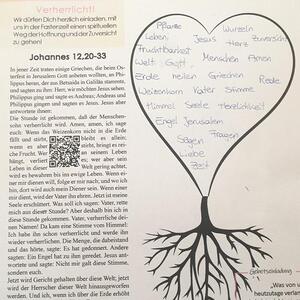 Verherrlicht!
Wir dürfen Dich herzlich einladen, mit
uns in der Fastenzeit einen spirituellen
Weg der Hoffnung und der Zuversicht
zu gehen!
Johannes 12,20-33
In jener Zeit traten einige Griechen, die beim Os-
terfest in Jerusalem Gott anbeten wollten, an Phi-
lippus heran, der aus Betsaida in Galiläa stammte,
und sagten zu ihm: Herr, wir möchten Jesus sehen.
Philippus ging und sagte es Andreas; Andreas und
Philippus gingen und sagten es Jesus. Jesus aber
antwortete ihnen:
Die Stunde ist gekommen, daß der Menschen-
sohn verherrlicht wird. Amen, amen, ich sage
euch: Wenn das Weizenkorn nicht in die Erde
fällt und stirbt, bleibt es allein;
wenn es aber stirbt, bringt
es reiche Frucht. Wer an seinem Leben
hängt, verliert es; wer aber sein
Leben in dieser Welt gering achtet,
wird es bewahren bis ins ewige Leben. Wenn ei-
ner mir dienen will, folge er mir nach; und wo ich
bin, dort wird auch mein Diener sein. Wenn einer
mir dient, wird der Vater ihn ehren. Jetzt ist meine
Seele erschüttert. Was soll ich sagen: Vater, rette
mich aus dieser Stunde? Aber deshalb bin ich in
diese Stunde gekommen. Vater, verherrliche dei-
nen Namen! Da kam eine Stimme vom Himmel:
Ich habe ihn schon verherrlicht und werde ihn
wieder verherrlichen. Die Menge, die dabeistand
und das hörte, sagte: Es hat gedonnert. Andere
sagten: Ein Engel hat zu ihm geredet. Jesus ant-
wortete und sagte: Nicht mir galt diese Stimme,
sondern euch.
Jetzt wird Gericht gehalten über diese Welt; jetzt
wird der Herrscher dieser Welt hinausgeworfen
werden. Und ich, wenn ich über die Erde erhöht
Pflanze Wurzeln
Leben Jesus Herz Zuversicht
Fruchtbarkeit
Welt Gott Menschen Amen
Erde heilen Griechen Rede
Weizenkorn Vater Stimme
Himmel Seele Herrlichkeit
Engel Jerusalem
Sagen Fragen
Liebe
Zeit
"Was von
heutzutage verlan